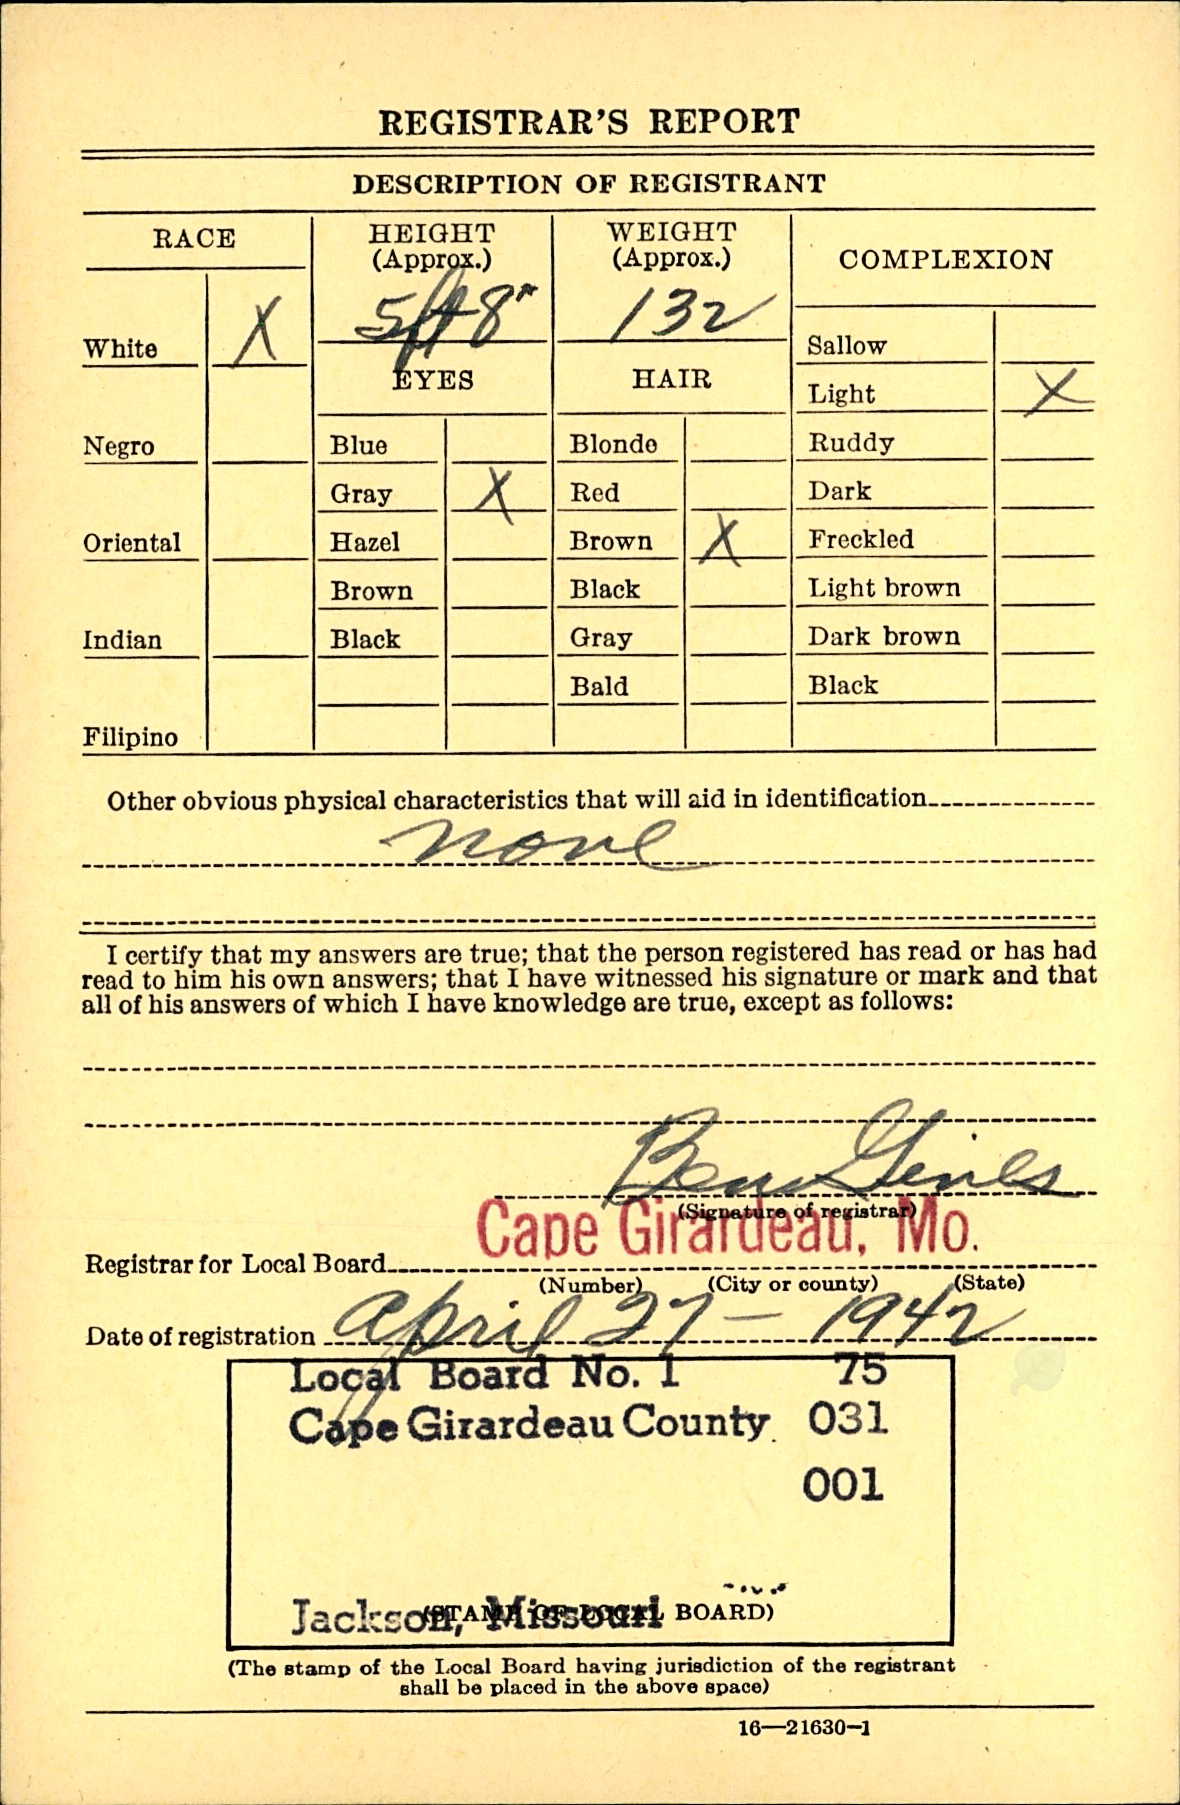 REGISTRAR'S REPORT
DESCRIPTION OF REGISTRANT
RACE
HEIGHT
(Approx.)
WEIGHT
(Approx.)
COMPLEXION
5 ft 8"
132
White X
EYES
HAIR
Sallow
Light X
Negro
Blue
Blonde
Ruddy
Gray X
Red
Dark
Oriental
Hazel
Brown X
Freckled
Brown
Black
Light brown
Indian
Black
Gray
Dark brown
Bald
Black
Filipino
Other obvious physical characteristics that will aid in identification
none
I certify that my answers are true; that the person registered has read or has had
read to him his own answers; that I have witnessed his signature or mark and that
all of his answers of which I have knowledge are true, except as follows:
Ben
(Signature of registrar)
Cape Girardeau, Mo.
Registrar for Local Board
(Number) (City or county) (State)
Date of registration April 27 - 1942
Local Board No. 1 75
Cape Girardeau County 031
001
Jackson, Missouri
(STAMP OF LOCAL BOARD)
(The stamp of the Local Board having jurisdiction of the registrant
shall be placed in the above space)
16—21630-1